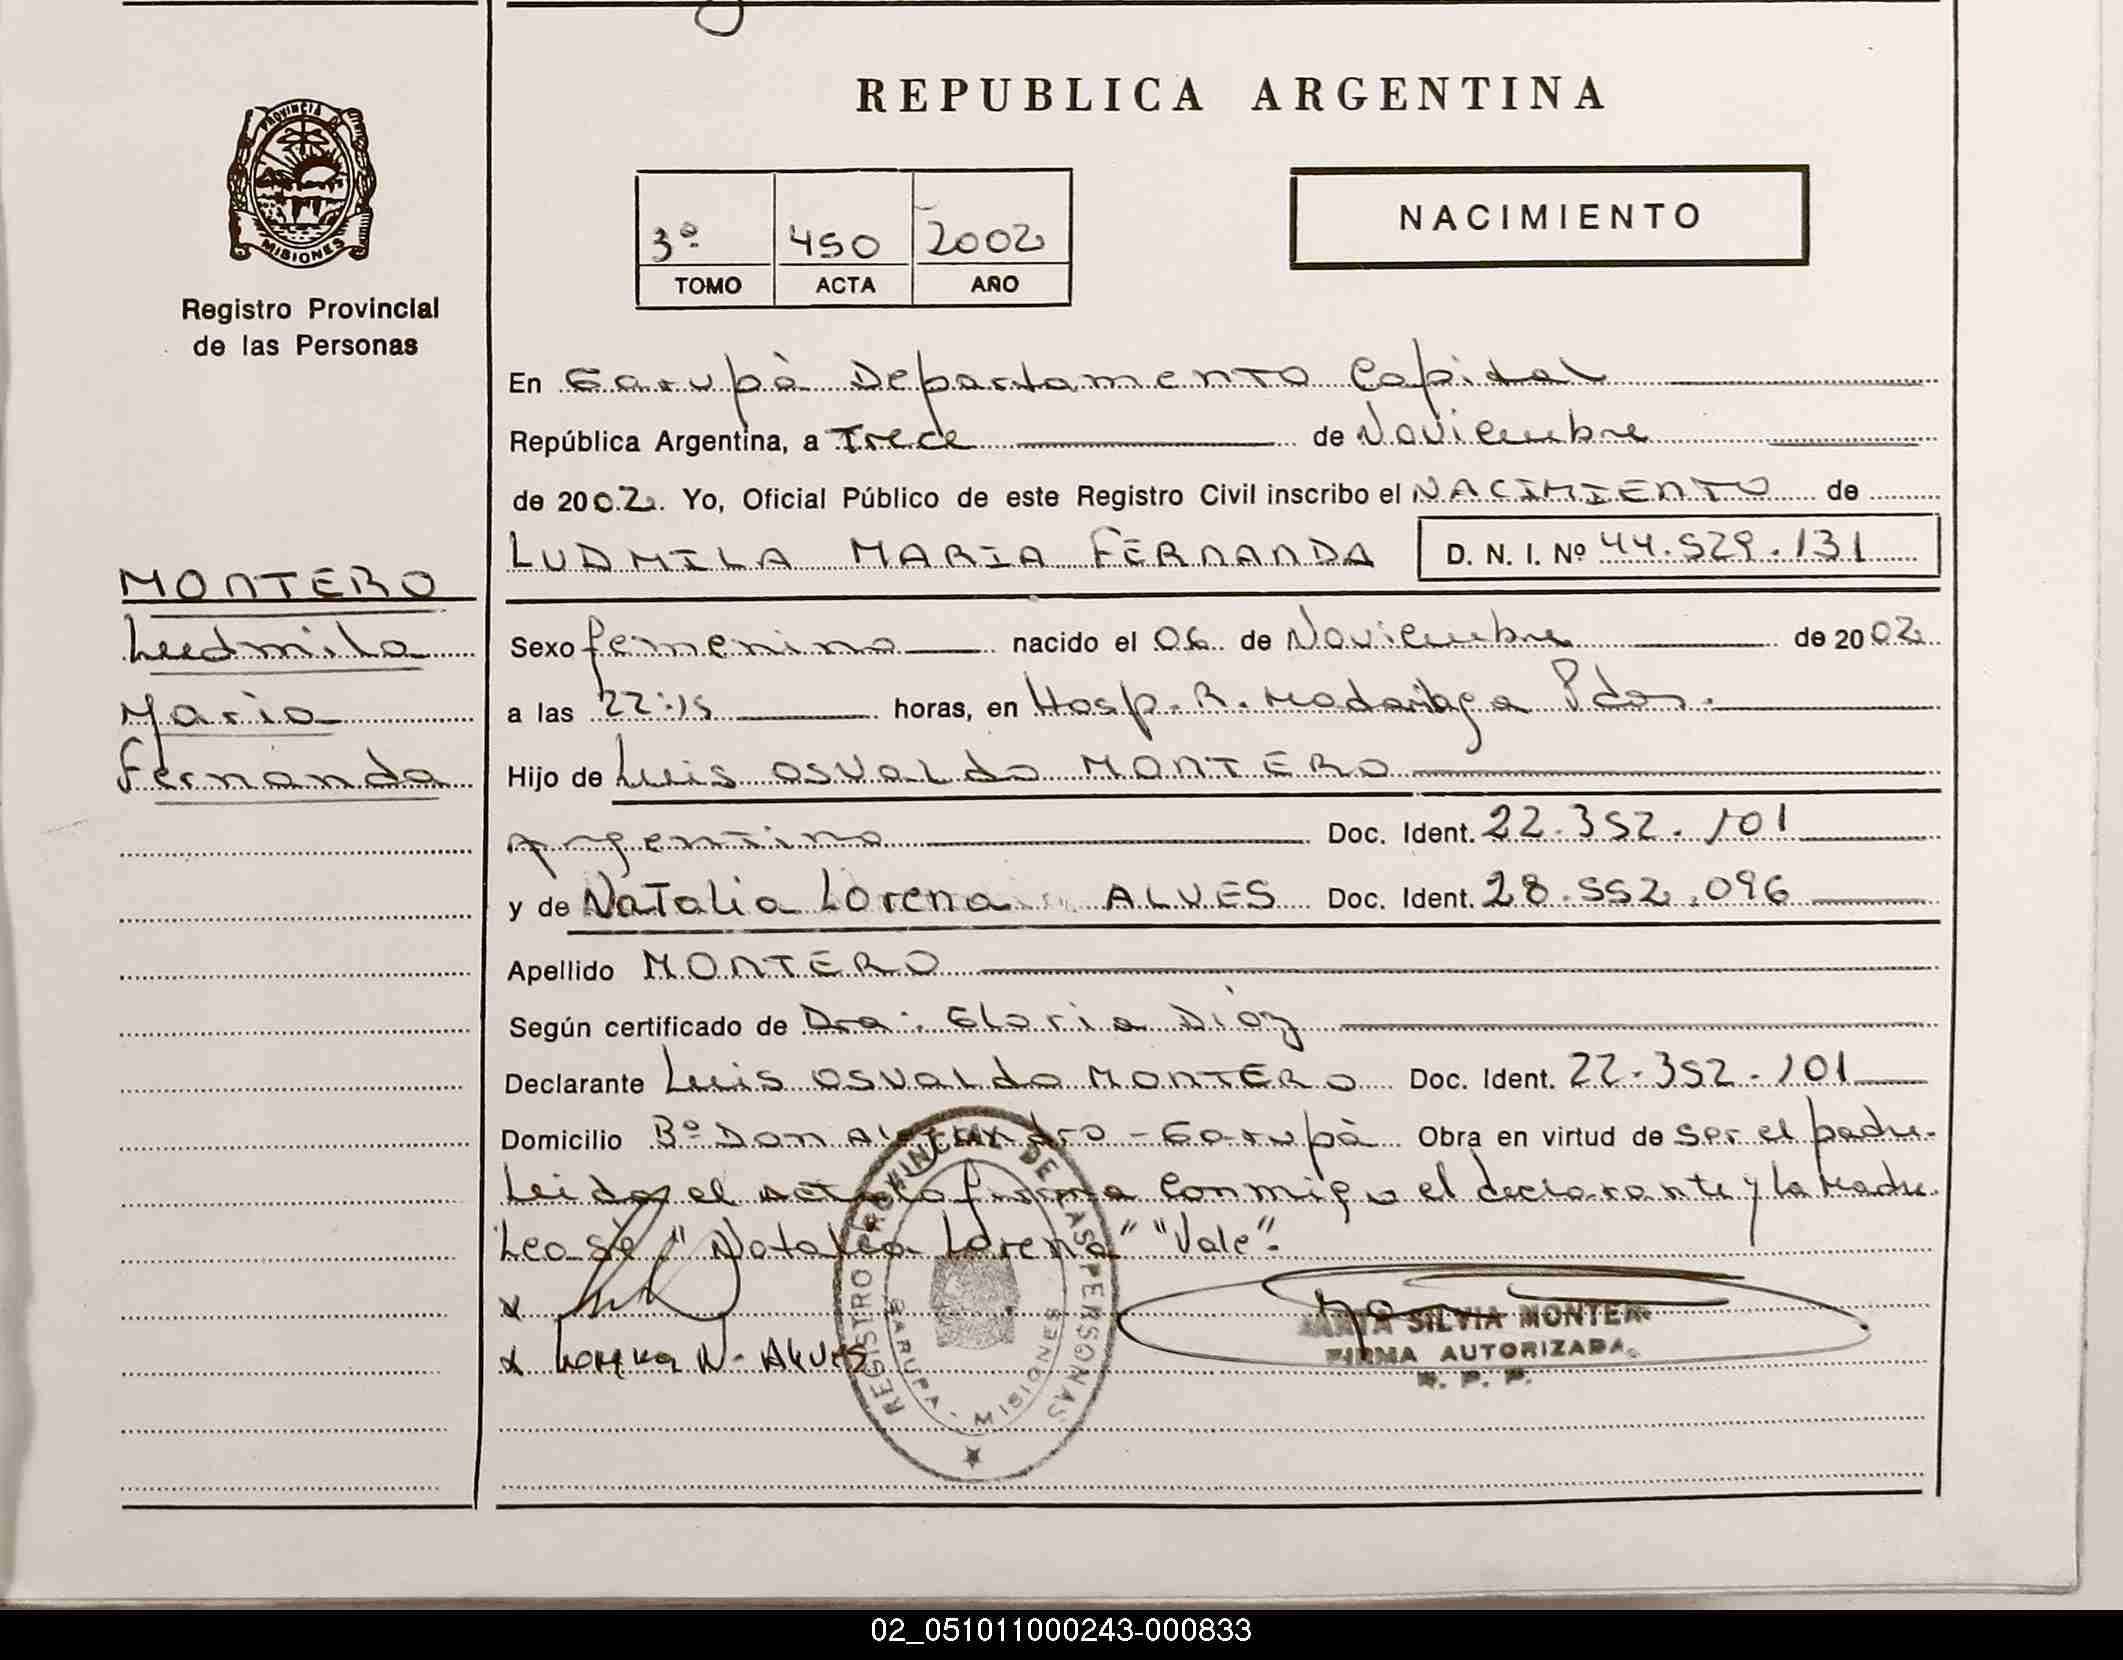 REPUBLICA ARGENTINA
PROVINCIA DE
MISIONES
Registro Provincial
de las Personas
3º 450 2002
TOMO ACTA AÑO
NACIMIENTO
En Garupà Departamento Capital
República Argentina, a Trece de Noviembre
de 2002. Yo, Oficial Público de este Registro Civil inscribo el NACIMIENTO de
LUDMILA MARIA FERNANDA D. N. I. Nº 44.529.131
MONTERO
Ludmila
Maria
Fernanda
Sexo femenino nacido el 06 de Noviembre de 2002
a las 22:15 horas, en Hosp. R. Madariaga Pdas.
Hijo de Luis Osvaldo MONTERO
argentino Doc. Ident. 22.352.101
y de Natalia Lorena ALVES Doc. Ident. 28.552.096
Apellido MONTERO
Según certificado de Dra. Gloria Diaz
Declarante Luis Osvaldo MONTERO Doc. Ident. 22.352.101
Domicilio Bº Don Alejandro - Garupà Obra en virtud de ser el padre.
Leida el acta la firma conmigo el declarante y la Madre
Lease "Natalia Lorena" "Vale".
x
x Lorena N. Alves
REGISTRO PROVINCIAL DE LAS PERSONAS
GARUPA - MISIONES
SILVIA MONTER
FIRMA AUTORIZADA
R. P. P.
02_051011000243-000833